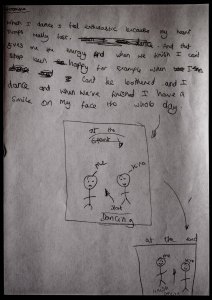 When I dance I feel enthusiastic because my heart
pumps really fast. dance. And that
gives me the energy And when we finish I cant
stop been happy for example when I'm
I cant be bothered and I
dance and when we're finished I have a
smile on my face the whole day.
at the
start
me
Just
Dancing
at the end
me